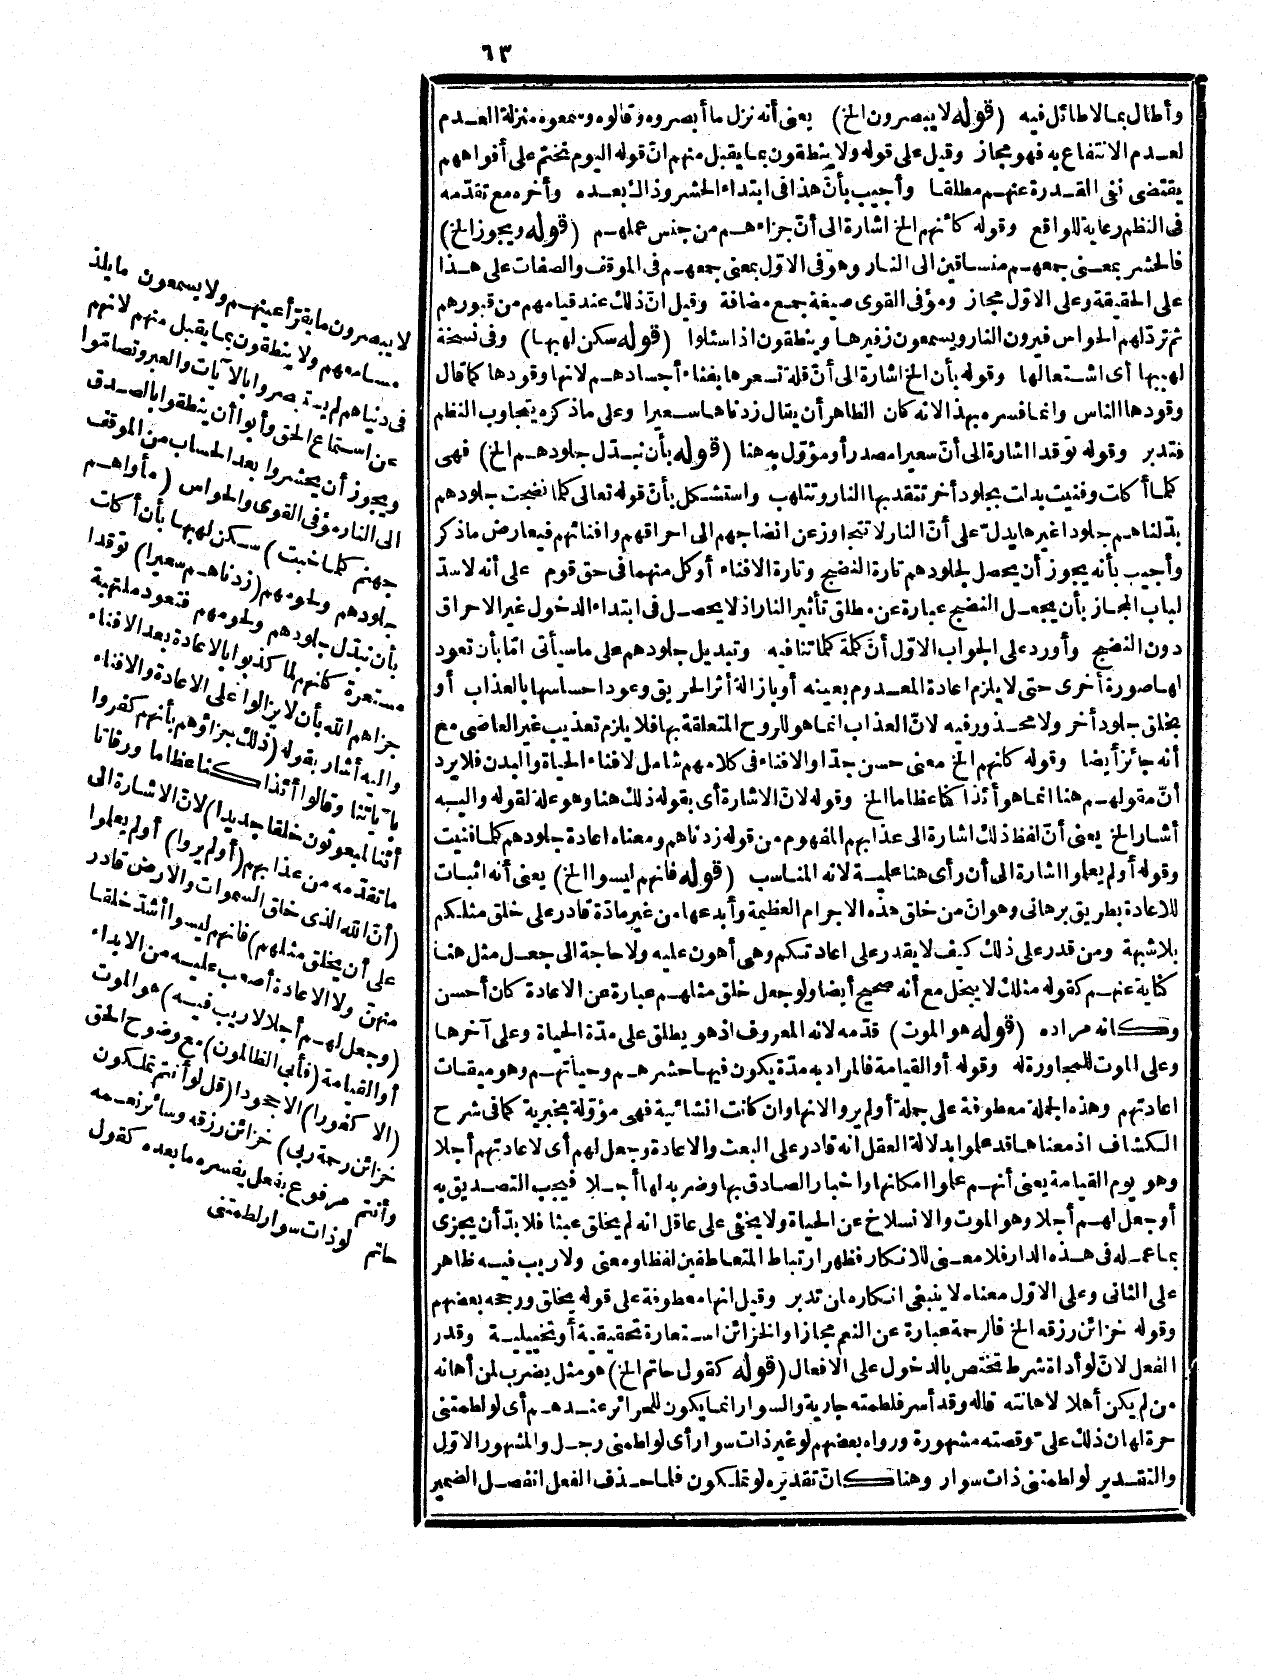 ٦٣
وأطال بمالاطائل فيه (قوله لا يبصرون الخ) يعنى أنه نزل ما أبصروه وقالوه وسمعوه منزلة العدم
لعدم الانتفاع به فهو مجاز وقيل على قوله ولا ينطقون بما يقبل منهم انّ قوله اليوم نختم على أفواههم
يقتضى نفى القدرة عنهم مطلقا وأجيب بأنّ هذا فى ابتداء الحشر وذاك بعده وأخره مع تقدّمه
فى النظم رعاية للواقع وقوله كأنهم الخ اشارة الى أنّ جزاءهم من جنس عملهم (قوله ويجوز الخ)
فالحشر بمعنى جمعهم منساقين الى النار وهو فى الاوّل بمعنى جمعهم فى الموقف والصفات على هذا
على الحقيقة وعلى الاوّل مجاز ومؤفى القوى صيغة جمع مضافة وقيل انّ ذلك عند قيامهم من قبورهم
ثم تردّ لهم الحواس فيرون النار ويسمعون زفيرها وينطقون اذا سئلوا (قوله سكن لهبها) وفى نسخة
لهيبها أى اشتعالها وقوله بأن الخ اشارة الى أنّ قلة تسعرها بفناء أجسادهم لانها وقودها كما قال
وقودها الناس وانما فسره بهذا لانه كان الظاهر أن يقال زدناها سعيرا وعلى ماذكره يتجاوب النظم
فتدبر وقوله توقدا اشارة الى أنّ سعيرا مصدر أو مؤوّل به هنا (قوله بأن نبدّل جلودهم الخ) فهى
كلما أكلت وفنيت بدلت بجلود أخر تتقد بها النار وتتلهب واستشكل بأنّ قوله تعالى كلما نضجت جلودهم
بدّلناهم جلودا غيرها يدلّ على أنّ النار لا تتجاوز عن انضاجهم الى احراقهم وافنائهم فيعارض ماذكر
وأجيب بأنه يجوز أن يحصل لجلودهم تارة النضج وتارة الافناء أو كل منهما فى حق قوم على أنه لاسدّ
لباب المجاز بأن يجعل النضج عبارة عن مطلق تأثير النار اذلا يحصل فى ابتداء الدخول غير الاحراق
دون النضج وأورد على الجواب الاوّل أنّ كلمة كلما تنافيه وتبديل جلودهم على ماسيأتى امّا بأن تعود
لها صورة أخرى حتى لا يلزم اعادة المعدوم بعينه أو بازالة أثر الحريق وعود احساسها بالعذاب أو
بخلق جلود أخر ولا محذور فيه لانّ العذاب انما هو للروح المتعلقة بها فلا يلزم تعذيب غير العاصى مع
أنه جائز أيضا وقوله كأنهم الخ معنى حسن جدّا والافناء فى كلامهم شامل لافناء الحياة والبدن فلا يرد
أنّ مقولهم هنا انما هو أئذا كنا عظاما الخ وقوله لانّ الاشارة أى بقوله ذلك هنا وهو علة لقوله واليه
أشار الخ يعنى أنّ لفظ ذلك اشارة الى عذابهم المفهوم من قوله زدناهم ومعناه اعادة جلودهم كلما فنيت
وقوله أولم يعلموا اشارة الى أن رأى هنا علمية لانه المناسب (قوله فانهم ليسوا الخ) يعنى أنه اثبات
للاعادة بطريق برهانى وهو انّ من خلق هذه الاجرام العظيمة وأبدعها من غير مادّة قادر على خلق مثلكم
بلا شبهة ومن قدر على ذلك كيف لا يقدر على اعادتكم وهى أهون عليه ولا حاجة الى جعل مثل هنا
كناية عنهم كقوله مثلك لا يبخل مع أنه صحيح أيضا ولو جعل خلق مثلهم عبارة عن الاعادة كان أحسن
وكأنه مراده (قوله هو الموت) قدّمه لانه المعروف اذ هو يطلق على مدّة الحياة وعلى آخرها
وعلى الموت للمجاورة له وقوله أو القيامة فالمراد به مدّة يكون فيها حشرهم وحياتهم وهو ميقات
اعادتهم وهذه الجملة معطوفة على جملة أولم يروا لانها وان كانت انشائية فهى مؤوّلة بخبرية كما فى شرح
الكشاف اذ معناها قد علموا بدلالة العقل انه قادر على البعث والاعادة وجعل لهم أى لاعادتهم أجلا
وهو يوم القيامة يعنى أنهم علموا امكانها واخبار الصادق بها وضربه لها أجلا فيجب التصديق به
أو جعل لهم أجلا وهو الموت والانسلاخ عن الحياة ولا يخفى على عاقل انه لم يخلق عبثا فلا بدّ أن يجزى
بما عمله فى هذه الدار فلا معنى للانكار فظهر ارتباط المتعاطفين لفظا ومعنى ولاريب فيه ظاهر
على الثانى وعلى الاوّل معناه لا ينبغى انكاره لمن تدبر وقيل انها معطوفة على قوله يخلق ورجحه بعضهم
وقوله خزائن رزقه الخ فالرحمة عبارة عن النعم مجازا والخزائن استعارة تحقيقية أو تخييلية وقدر
الفعل لانّ لو أداة شرط تختص بالدخول على الافعال (قوله كقول حاتم الخ) هو مثل يضرب لمن أهانه
من لم يكن أهلا لاهانته قاله وقد أسر فلطمته جارية والسوار انما يكون للحرائر عندهم أى لو لطمتنى
حرة لهان ذلك علىّ وقصته مشهورة ورواه بعضهم لو غير ذات سوار أى لو لطمنى رجل والمشهور الاوّل
والتقدير لو لطمتنى ذات سوار وهنا كان تقديره لو تملكون فلما حذف الفعل انفصل الضمير
لا يبصرون ما يقرّ أعينهم ولا يسمعون مايلذ
مسامعهم ولا ينطقون بما يقبل منهم لانهم
فى دنياهم لم يستبصروا بالآيات والعبر وتصامّوا
عن استماع الحق وأبوا أن ينطقوا بالصدق
ويجوز أن يحشروا بعد الحساب من الموقف
الى النار مؤفى القوى والحواس (مأواهم
جهنم كلما خبت) سكن لهبها بأن أكلت
جلودهم ولحومهم (زدناهم سعيرا) توقدا
بأن نبدّل جلودهم ولحومهم فتعود ملتهبة
مستعرة كأنهم لما كذبوا بالاعادة بعد الافناء
جزاهم الله بأن لا يزالوا على الاعادة والافناء
واليه أشار بقوله (ذلك جزاؤهم بأنهم كفروا
بآياتنا وقالوا أئذا كنا عظاما ورفاتا
أئنا لمبعوثون خلقا جديدا) لانّ الاشارة الى
ماتقدّمه من عذابهم (أولم يروا) أولم يعلموا
(أنّ الله الذى خلق السموات والارض قادر
على أن يخلق مثلهم) فانهم ليسوا أشدّ خلقا
منهنّ ولا الاعادة أصعب عليه من الابداء
(وجعل لهم أجلا لاريب فيه) هو الموت
أو القيامة (فأبى الظالمون) مع وضوح الحق
(الا كفورا) الا جحودا (قل لو أنتم تملكون
خزائن رحمة ربى) خزائن رزقه وسائر نعمه
وأنتم مرفوع بفعل يفسره مابعده كقول
حاتم لو ذات سوار لطمتنى